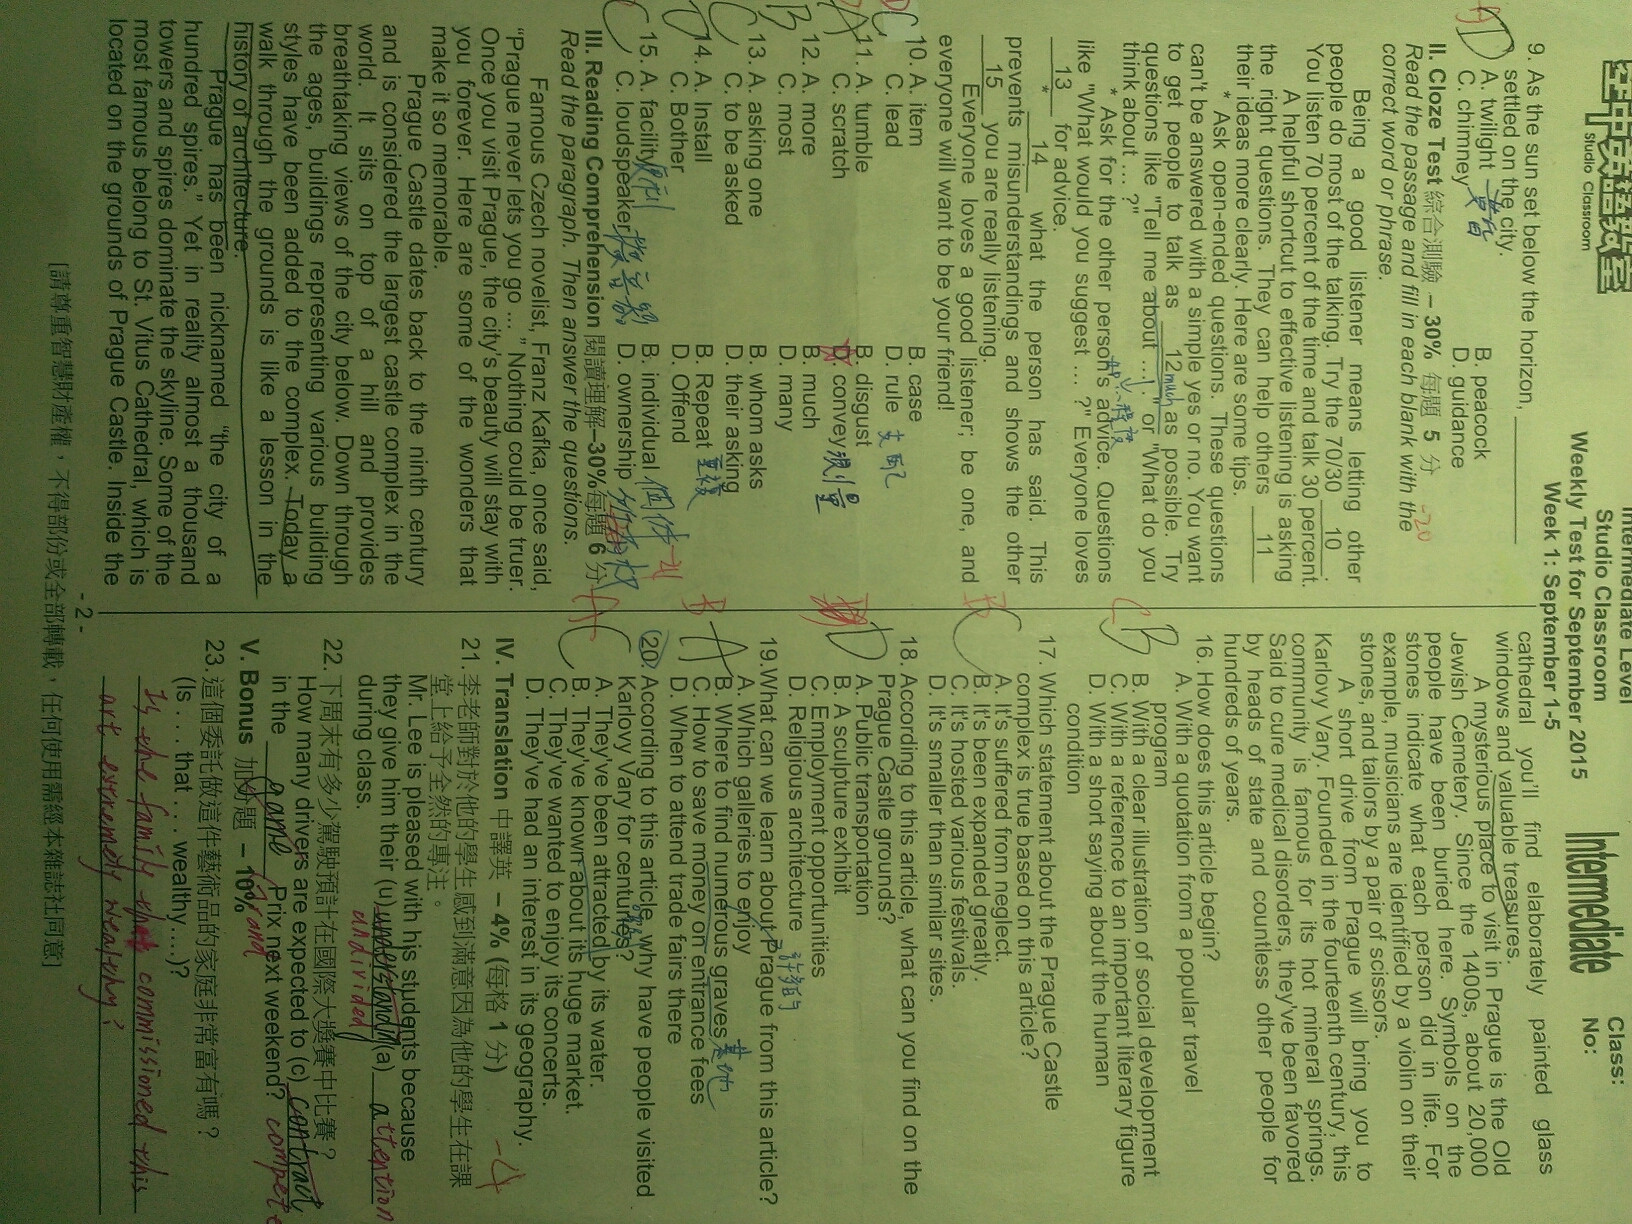 空中英語教室
Studio Classroom
Intermediate Level
Studio Classroom
Weekly Test for September 2015
Week 1: September 1-5
Intermediate
Class:
No:
9. As the sun set below the horizon, ________
settled on the city.
A. twilight 黃昏 B. peacock
C. chimney D. guidance
II. Cloze Test 綜合測驗 – 30% 每題 5 分 -20
Read the passage and fill in each blank with the
correct word or phrase.
Being a good listener means letting other
people do most of the talking. Try the 70/30 10 .
You listen 70 percent of the time and talk 30 percent.
A helpful shortcut to effective listening is asking
the right questions. They can help others 11
their ideas more clearly. Here are some tips.
* Ask open-ended questions. These questions
can't be answered with a simple yes or no. You want
to get people to talk as 12 much as possible. Try
questions like "Tell me about ...!," or "What do you
think about ... ?"
* Ask for the other person's advice. Questions
like "What would you suggest ... ?" Everyone loves
13 for advice.
* 14 what the person has said. This
prevents misunderstandings and shows the other
15 you are really listening.
Everyone loves a good listener; be one, and
everyone will want to be your friend!
10. A. item B. case
C. lead D. rule 支配
11. A. tumble B. disgust
C. scratch D. convey
12. A. more B. much
C. most D. many
13. A. asking one B. whom asks
C. to be asked D. their asking
14. A. Install B. Repeat 重複
C. Bother D. Offend
15. A. facility B. individual 個体
C. loudspeaker D. ownership
III. Reading Comprehension 閱讀理解–30%每題 6 分
Read the paragraph. Then answer the questions.
Famous Czech novelist, Franz Kafka, once said,
"Prague never lets you go ... " Nothing could be truer.
Once you visit Prague, the city's beauty will stay with
you forever. Here are some of the wonders that
make it so memorable.
Prague Castle dates back to the ninth century
and is considered the largest castle complex in the
world. It sits on top of a hill and provides
breathtaking views of the city below. Down through
the ages, buildings representing various building
styles have been added to the complex. Today a
walk through the grounds is like a lesson in the
history of architecture.
Prague has been nicknamed "the city of a
hundred spires." Yet in reality almost a thousand
towers and spires dominate the skyline. Some of the
most famous belong to St. Vitus Cathedral, which is
located on the grounds of Prague Castle. Inside the
cathedral you'll find elaborately painted glass
windows and valuable treasures.
A mysterious place to visit in Prague is the Old
Jewish Cemetery. Since the 1400s, about 20,000
people have been buried here. Symbols on the
stones indicate what each person did in life. For
example, musicians are identified by a violin on their
stones, and tailors by a pair of scissors.
A short drive from Prague will bring you to
Karlovy Vary. Founded in the fourteenth century, this
community is famous for its hot mineral springs.
Said to cure medical disorders, they've been favored
by heads of state and countless other people for
hundreds of years.
16. How does this article begin?
A. With a quotation from a popular travel
program
B. With a clear illustration of social development
C. With a reference to an important literary figure
D. With a short saying about the human
condition
17. Which statement about the Prague Castle
complex is true based on this article?
A. It's suffered from neglect.
B. It's been expanded greatly.
C. It's hosted various festivals.
D. It's smaller than similar sites.
18. According to this article, what can you find on the
Prague Castle grounds?
A. Public transportation
B. A sculpture exhibit
C. Employment opportunities
D. Religious architecture
19. What can we learn about Prague from this article?
A. Which galleries to enjoy
B. Where to find numerous graves 墓地
C. How to save money on entrance fees
D. When to attend trade fairs there
20. According to this article, why have people visited
Karlovy Vary for centuries?
A. They've been attracted by its water.
B. They've known about its huge market.
C. They've wanted to enjoy its concerts.
D. They've had an interest in its geography.
IV. Translation 中譯英 – 4% (每格 1 分) -4
21. 李老師對於他的學生感到滿意因為他的學生在課
堂上給予全然的專注。
Mr. Lee is pleased with his students because
they give him their (u) understandin (a) attention
during class. undivided
22. 下周末有多少駕駛預計在國際大獎賽中比賽？
How many drivers are expected to (c) contract
in the game Prix next weekend? compete
Grand
V. Bonus 加分題 – 10%
23. 這個委託做這件藝術品的家庭非常富有嗎？
(Is .... that ... wealthy....)?
Is the family that commissioned this
art extremely wealthy?
- 2 -
[請尊重智慧財產權，不得部份或全部轉載，任何使用需經本雜誌社同意]